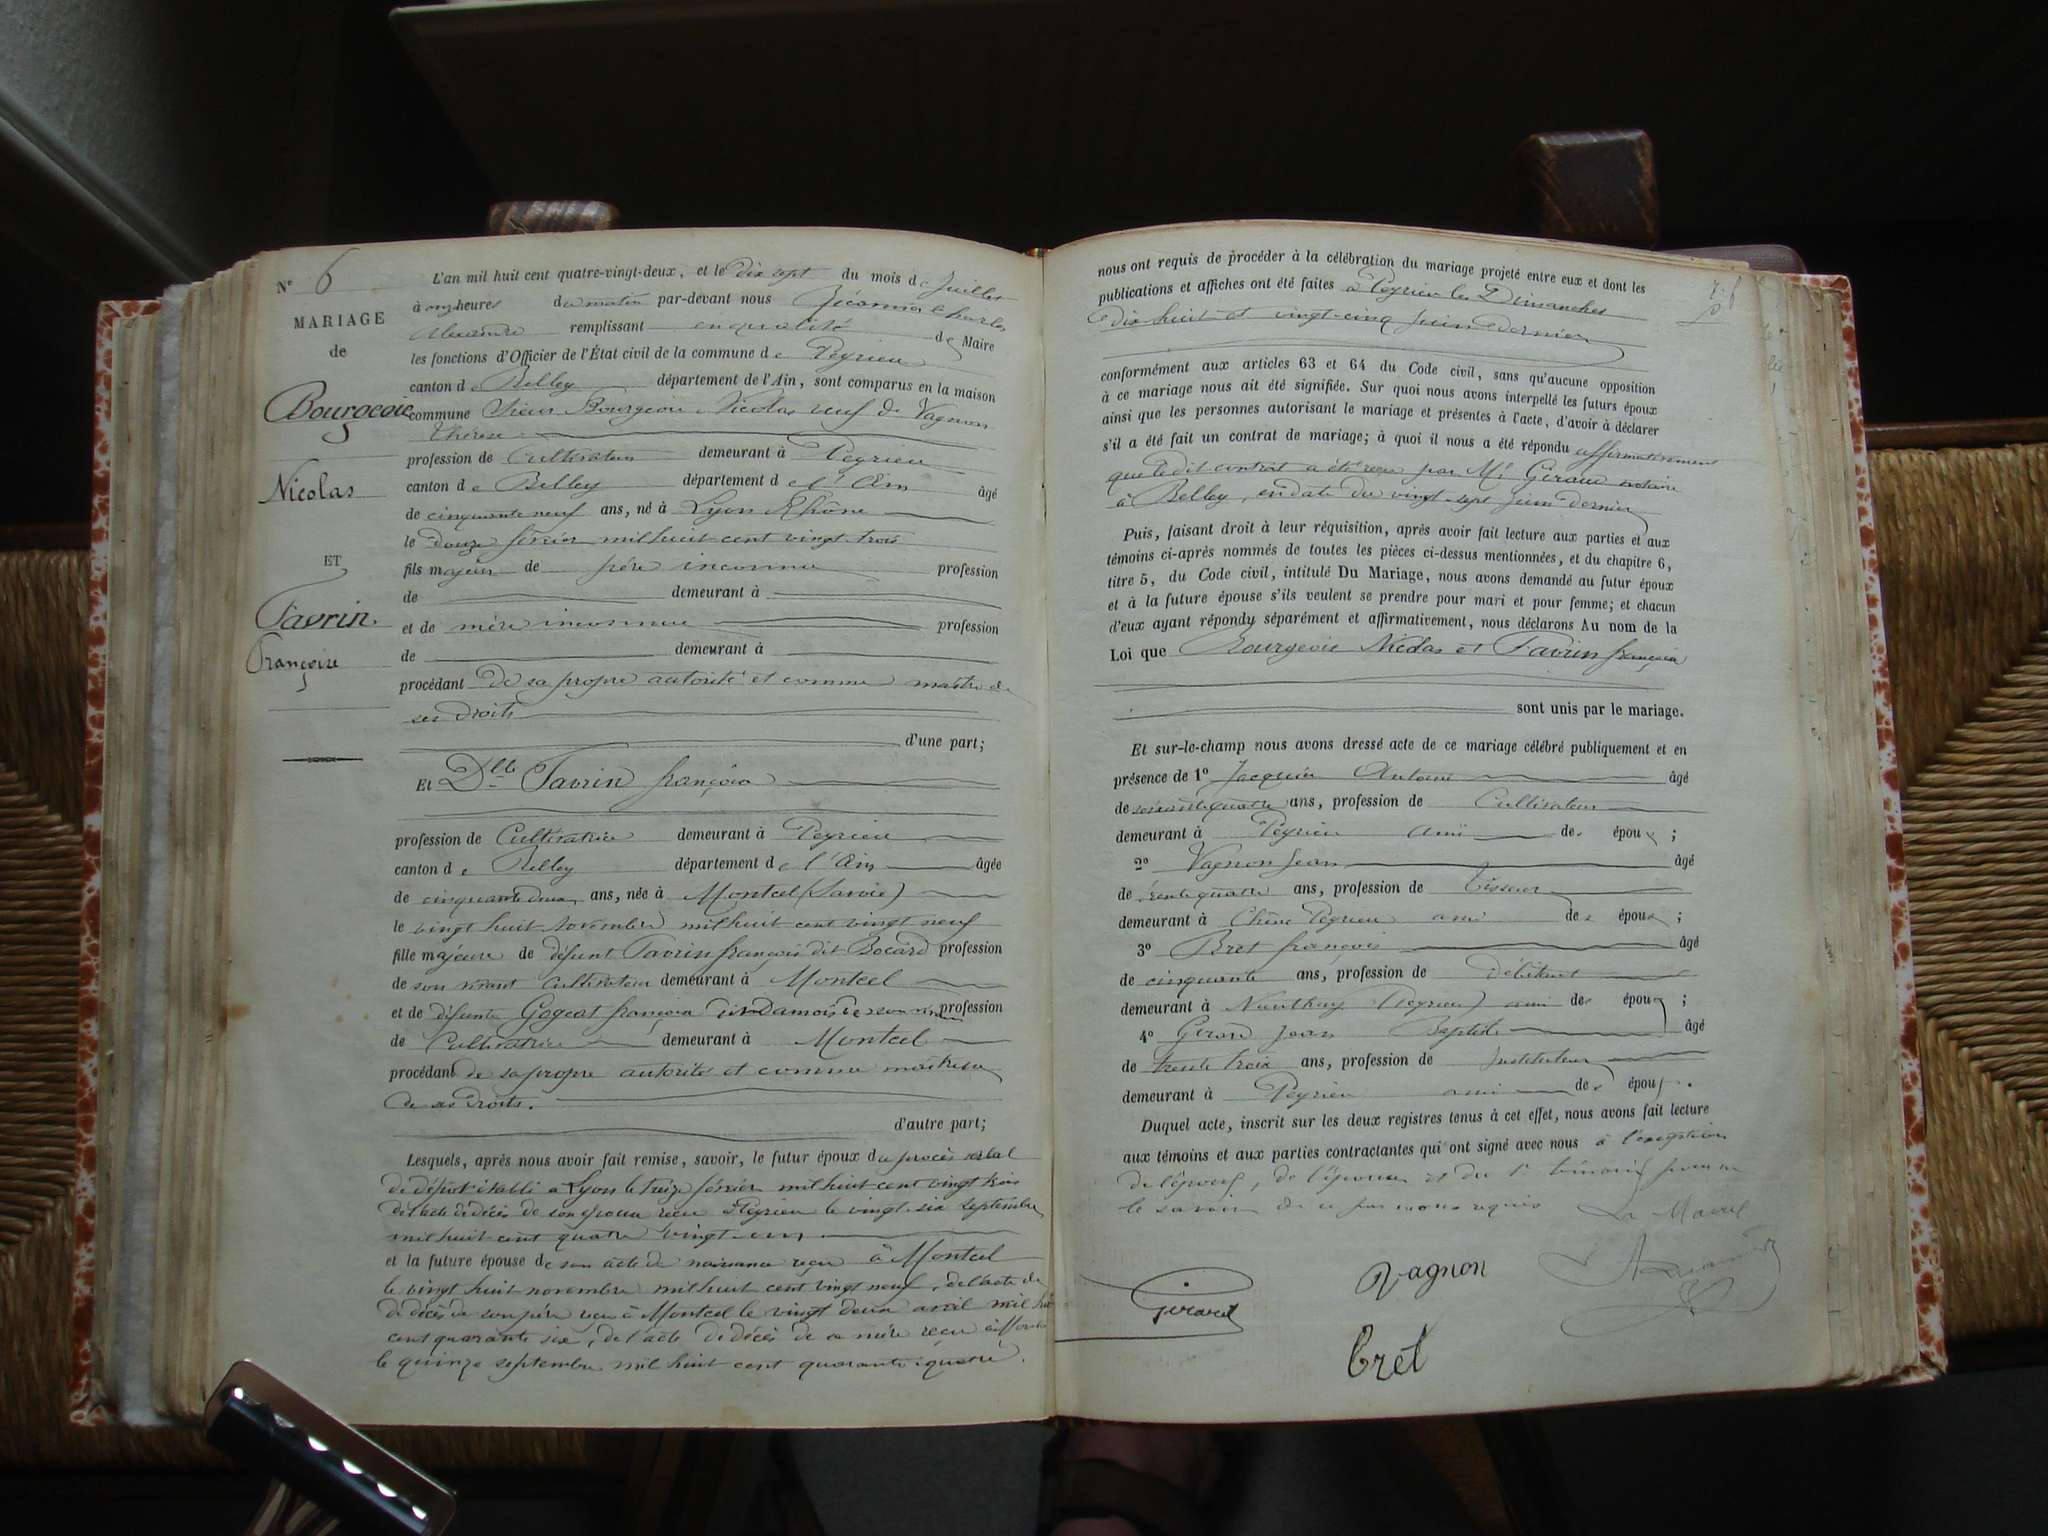 N° 6
MARIAGE
de
Bourgeois
Nicolas
ET
Favrin
Françoise
L'an mil huit cent quatre-vingt-deux, et le dix sept du mois de Juillet
à onze heures du matin par-devant nous Charles
Alexandre remplissant en qualité de Maire
les fonctions d'Officier de l'État civil de la commune de Peyrieu
canton de Belley département de l'Ain, sont comparus en la maison
commune Sieur Bourgeois Nicolas veuf de Vagnon
Thérèse
profession de Cultivateur demeurant à Peyrieu
canton de Belley département de l'Ain âgé
de cinquante neuf ans, né à Lyon Rhône
le douze février mil huit cent vingt trois
fils majeur de père inconnu profession
de demeurant à
et de mère inconnue profession
de demeurant à
procédant de sa propre autorité et comme maître de
ses droits
d'une part;
Et Dlle Favrin françoise
profession de Cultivatrice demeurant à Peyrieu
canton de Belley département de l'Ain âgée
de cinquante deux ans, née à Montcel (Savoie)
le vingt huit novembre mil huit cent vingt neuf
fille majeure de défunt Favrin françois dit Bocard profession
de son vivant Cultivateur demeurant à Montcel
et de défunte françoise profession
de Cultivatrice demeurant à Montcel
procédant de sa propre autorité et comme maîtresse
de ses droits.
d'autre part;
Lesquels, après nous avoir fait remise, savoir, le futur époux du procès verbal
de dépôt établi à Lyon le treize février mil huit cent vingt trois
de l'acte de décès de son épouse reçu à Peyrieu le vingt-six septembre
mil huit cent quatre vingt-un
et la future épouse de son acte de naissance reçu à Montcel
le vingt huit novembre mil huit cent vingt neuf, de l'acte de
de décès de son père reçu à Montcel le vingt deux avril mil huit
cent quarante six, de l'acte de décès de sa mère reçu à Montcel
le quinze septembre mil huit cent quarante-quatre.
nous ont requis de procéder à la célébration du mariage projeté entre eux et dont les
publications et affiches ont été faites à Peyrieu les Dimanches
dix-huit et vingt-cinq juin dernier
conformément aux articles 63 et 64 du Code civil, sans qu'aucune opposition
à ce mariage nous ait été signifiée. Sur quoi nous avons interpellé les futurs époux
ainsi que les personnes autorisant le mariage et présentes à l'acte, d'avoir à déclarer
s'il a été fait un contrat de mariage; à quoi il nous a été répondu affirmativement
que le dit contrat a été reçu par Me Giraud notaire
à Belley, en date du vingt-sept juin dernier
Puis, faisant droit à leur réquisition, après avoir fait lecture aux parties et aux
témoins ci-après nommés de toutes les pièces ci-dessus mentionnées, et du chapitre 6,
titre 5, du Code civil, intitulé Du Mariage, nous avons demandé au futur époux
et à la future épouse s'ils veulent se prendre pour mari et pour femme; et chacun
d'eux ayant répondy séparément et affirmativement, nous déclarons Au nom de la
Loi que Bourgeois Nicolas et Favrin françoise
sont unis par le mariage.
Et sur-le-champ nous avons dressé acte de ce mariage célébré publiquement et en
présence de 1° Jacquin Antoine âgé
de soixante quatre ans, profession de Cultivateur
demeurant à Peyrieu ami des époux;
2° Vagnon Jean âgé
de trente quatre ans, profession de Tisseur
demeurant à Peyrieu ami des époux;
3° Bret françois âgé
de cinquante ans, profession de Débitant
demeurant à (Peyrieu) ami des époux;
4° Girard Jean Baptiste âgé
de trente trois ans, profession de Instituteur
demeurant à Peyrieu ami des époux.
Duquel acte, inscrit sur les deux registres tenus à cet effet, nous avons fait lecture
aux témoins et aux parties contractantes qui ont signé avec nous à l'exception
de l'époux, de l'épouse et du 1er témoin pour ne
le savoir de ce par nous requis Le Maire
Vagnon
Girard
Bret